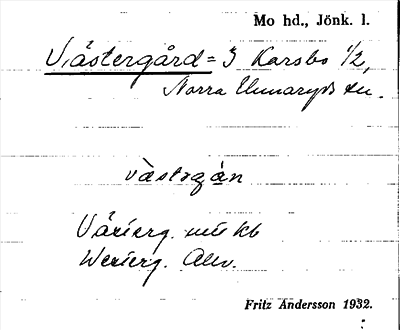 Mo hd., Jönk. l.
Västergård = 3 Karsbo 1/2,
Norra Unnaryds sn.
västrgän
Västerg.
Westerg.
Fritz Andersson 1932.